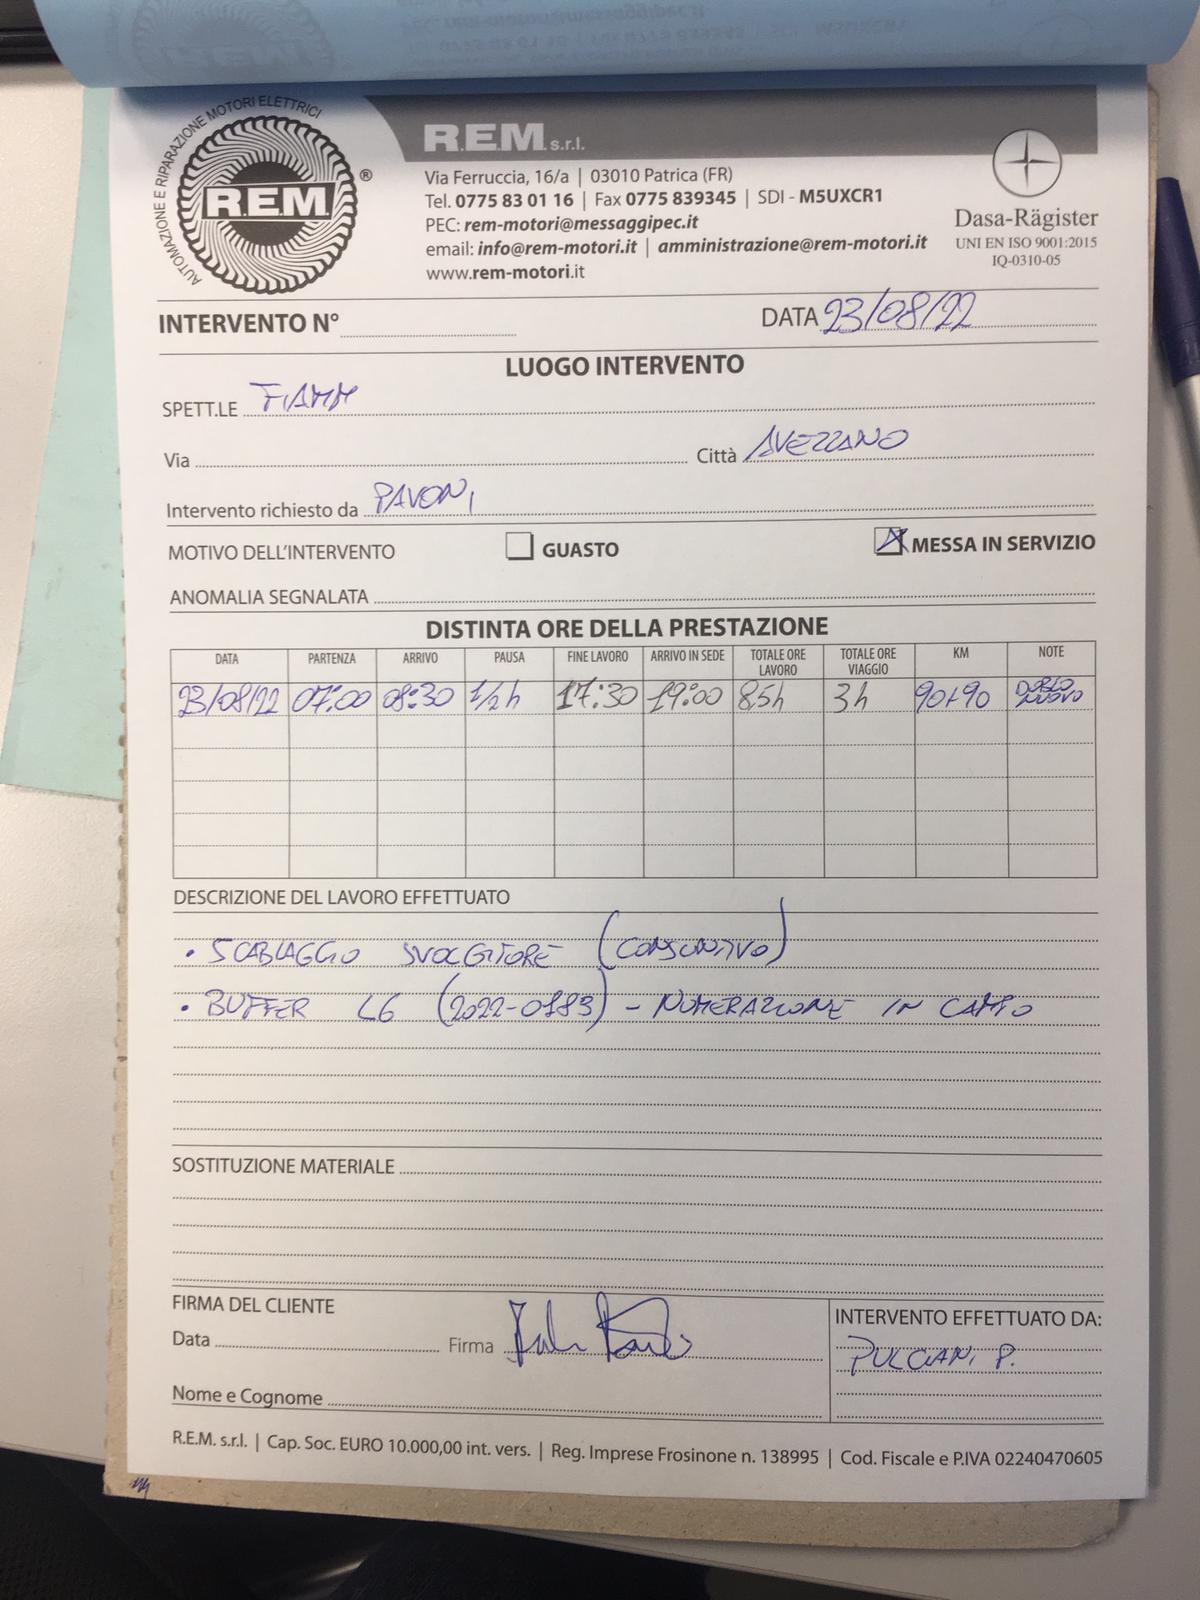 AUTOMAZIONE E RIPARAZIONE MOTORI ELETTRICI
R.E.M ®
R.E.M. s.r.l.
Via Ferruccia, 16/a | 03010 Patrica (FR)
Tel. 0775 83 01 16 | Fax 0775 839345 | SDI - M5UXCR1
PEC: rem-motori@messaggipec.it
email: info@rem-motori.it | amministrazione@rem-motori.it
www.rem-motori.it
Dasa-Rägister
UNI EN ISO 9001:2015
IQ-0310-05
INTERVENTO N° DATA 23/08/22
LUOGO INTERVENTO
SPETT.LE FIAMM
Via Città AVEZZANO
Intervento richiesto da PAVONI
MOTIVO DELL'INTERVENTO GUASTO MESSA IN SERVIZIO
ANOMALIA SEGNALATA
DISTINTA ORE DELLA PRESTAZIONE
DATA PARTENZA ARRIVO PAUSA FINE LAVORO ARRIVO IN SEDE TOTALE ORE LAVORO TOTALE ORE VIAGGIO KM NOTE
23/08/22 07:00 08:30 1/2 h 17:30 19:00 8,5h 3h 90+90
DESCRIZIONE DEL LAVORO EFFETTUATO
• SCABLAGGIO SVOLGITORE (CONSUNTIVO)
• BUFFER L6 (2022-0183) - NUMERAZIONE IN CAMPO
SOSTITUZIONE MATERIALE
FIRMA DEL CLIENTE
Data Firma
Nome e Cognome
INTERVENTO EFFETTUATO DA:
PULCIANI P.
R.E.M. s.r.l. | Cap. Soc. EURO 10.000,00 int. vers. | Reg. Imprese Frosinone n. 138995 | Cod. Fiscale e P.IVA 02240470605